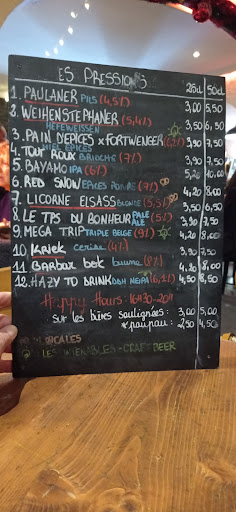 ES PRESSIONS 25cl 50cl
1. PAULANER PILS (4,5%) 3,00 5,50
2. WEIHENSTEPHANER (5,4%) 3,50 6,50
HEFEWEISSEN
3. PAIN D'EPICES x FORTWENGER 3,90 7,50
4. TOUT ROUX BRIOCHE (7%) 3,90 7,50
5. BAYAMO IPA (6%) 5,20
6. RED SNOW EPICES (7%) 4,20 8,00
7. LICORNE ELSASS BLONDE (5,5%) 3,50 6,50
8. LE TPS DU BONHEUR PALE ALE (5%) 3,90 7,50
9. MEGA TRIP TRIPLE BELGE (9%) 4,20 8,00
10 Kriek Cerise (4%) 3,90 7,50
11 Barbar bok brune (8%) 4,20 8,00
12 HAZY TO DRINK DDH NEIPA (6,1%) 4,50 8,50
Happy Hours: 16H30-20H
sur les bières soulignées: 3,00 5,00
* paupau: 2,50 4,50
LOCALES
CRAFT BEER